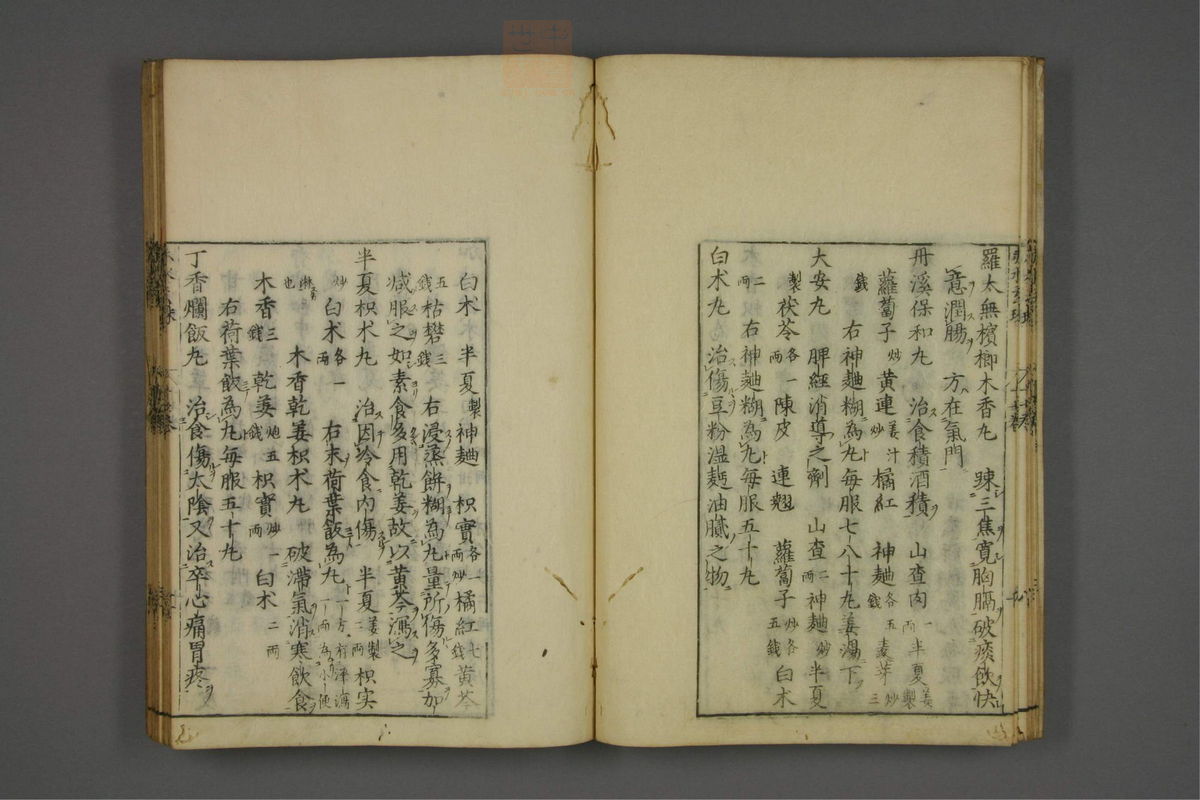 羅太無檳榔木香丸 踈三焦寬胸膈破痰飲快
意潤腸 方在氣門
丹溪保和丸 治食積酒積 山查肉一兩半夏姜製
蘿蔔子炒黃連姜汁炒橘紅 神麯各五錢麦芽炒三
錢 右神麯糊為丸每服七八十丸姜湯下
大安丸 脾經消導之劑 山查二兩神麯炒半夏
製茯苓各一兩陳皮 連翹 蘿蔔子炒各五錢白术
二兩 右神麯糊為丸每服五十丸
白术丸 治傷豆粉湿麪油膩之物
白术 半夏製神麯 枳實各一兩炒橘紅七錢黄芩
五錢枯礬三錢 右浸蒸餅糊為丸量所傷多寡加
减服之如素食多用乾姜故以黄芩瀉之
半夏枳术丸 治因冷食内傷 半夏姜製二兩枳实
炒白术各一兩 右末荷葉飯為丸一方有澤瀉一兩為小便
淋也 木香乾姜枳术丸 破滯氣消寒飲食
木香三錢乾姜炮五錢枳實炒一兩白术二兩
右荷葉飯為丸每服五十丸
丁香爛飯丸 治食傷太陰又治卒心痛胃疼